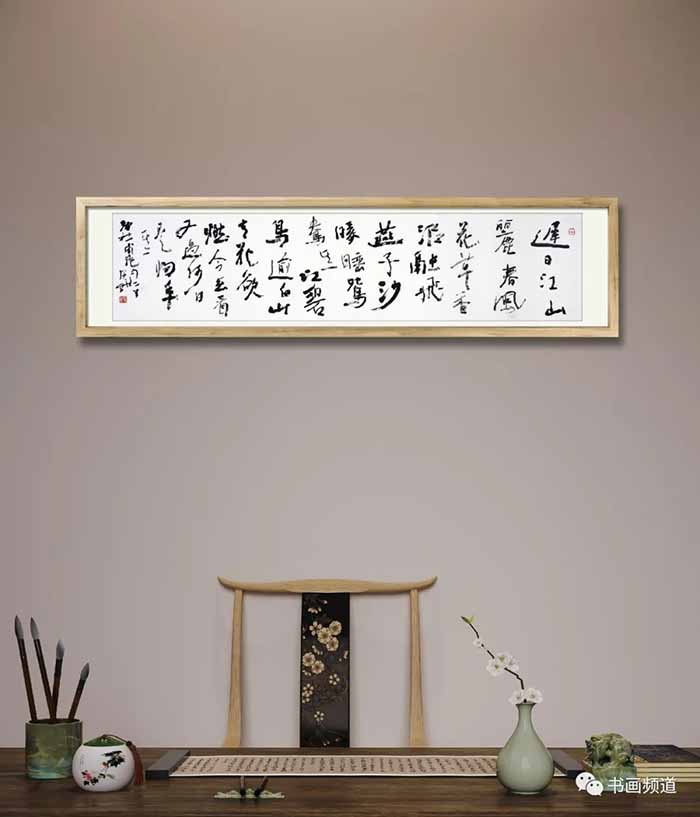 遲日江山
麗春風
花草香
泥融飛
燕子沙
暖睡鴛
鴦江碧
鳥逾白山
青花欲
燃今春看
又過何日
是歸年
杜甫絕句二首
书画频道